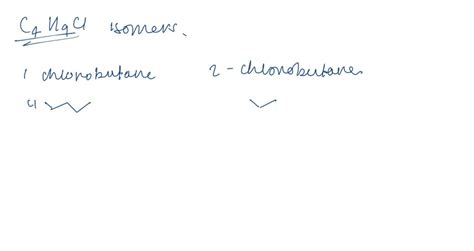 C4H9Cl isomers.
1 chlorobutane 2-chlorobutane
Cl